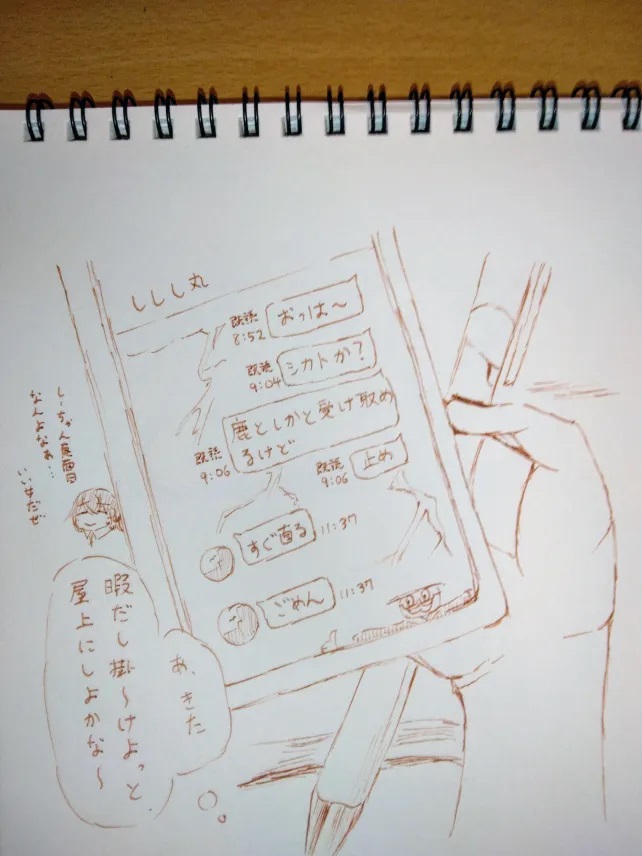 ししし丸
おっは〜
既読
8:52
シカトか?
既読
9:04
鹿としかと受け取め
るけど
既読
9:06
止め
既読
9:06
すぐ直る
11:37
ごめん
11:37
しーちゃん真面目
なんよなぁ…
いい事だぜ
あ、きた
暇だし掛〜けよっと、
屋上にしよかな〜